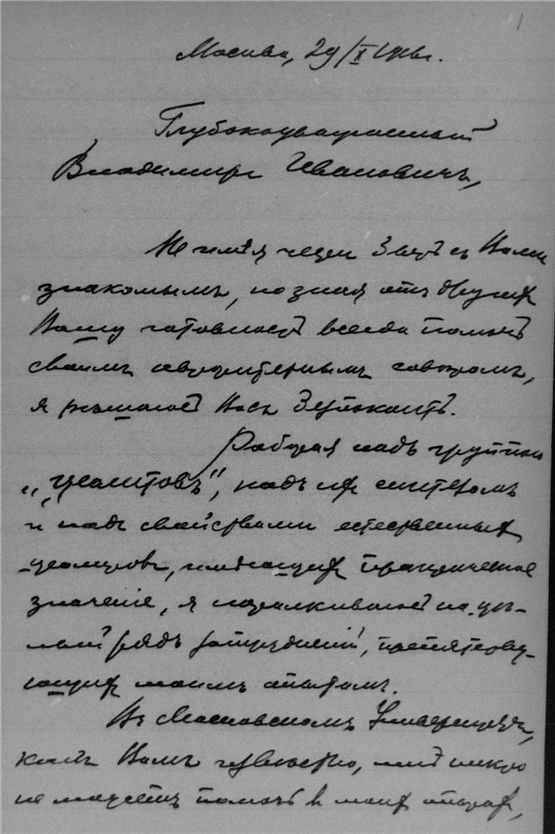 1
Москва, 29/X 1916 г.
Глубокоуважаемый
Владимиръ Ивановичъ,
Не имѣя чести быть съ Вами
знакомымъ, но зная отъ другихъ
Вашу готовность всегда помочь
своимъ авторитетнымъ совѣтомъ,
я рѣшаюсь Васъ безпокоить.
Работая надъ группой
„цеолитовъ", надъ ихъ синтезомъ
и надъ свойствами естественныхъ
цеолитовъ, имѣющихъ практическое
значеніе, я наталкиваюсь на цѣ-
лый рядъ затрудненій, препятству-
ющихъ моимъ опытамъ.
Въ Московскомъ Университетѣ,
какъ Вамъ извѣстно, мнѣ никто
не можетъ помочь въ моихъ опытахъ,